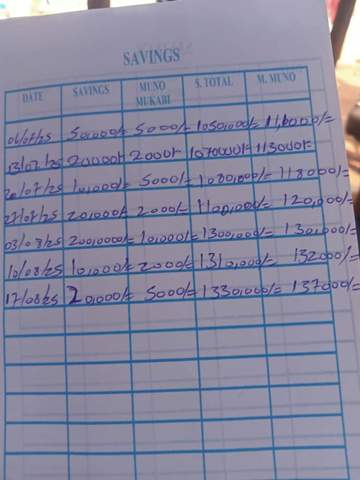 SAVINGS
DATE SAVINGS MUNO MUKABI S. TOTAL M. MUNO
06/07/25 50,000/= 5000/= 1050,000/= 111,000/=
13/07/25 20000/= 2000/= 1070000/= 113000/=
20/07/25 10,000/= 5000/= 1080,000/= 118000/=
27/07/25 20,000/= 2000/= 1100,000/= 120,000/=
03/08/25 200,000/= 10,000/= 1300,000/= 130,000/=
10/08/25 10,000/= 2000/= 1310,000/= 132000/=
17/08/25 20,000/= 5000/= 1330,000/= 137000/=